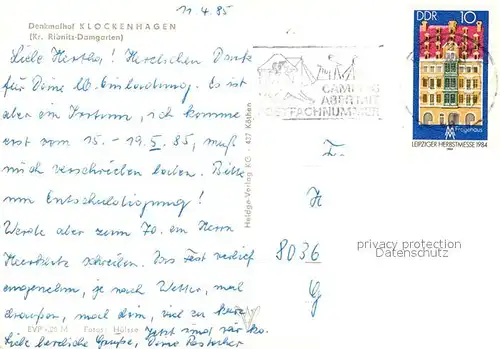 11.4.85
Denkmalhof KLOCKENHAGEN
(Kr. Ribnitz-Damgarten)
Liebe Hertha! Herzlichen Dank
für Deine lb. Einladung. Es ist
aber ein Irrtum, ich komme
erst vom 15. - 19. 5. 85, muß
mich verschrieben haben. Bitte
um Entschuldigung!
Werde aber zum 70. an Herrn
schreiben. Das Fest verlief
angenehm, je nach Wetter, mal
draußen, mal drin, viel zu kurz
Jetzt sind
Liebe herzliche Grüße, Deine
EVP -,20 M Fotos: Hülsse
Heldge-Verlag KG · 437 Köthen
CAMPING
ABER MIT
POSTFACHNUMMER
DDR 10
Fregehaus
LEIPZIGER HERBSTMESSE 1984
8036
privacy protection
Datenschutz